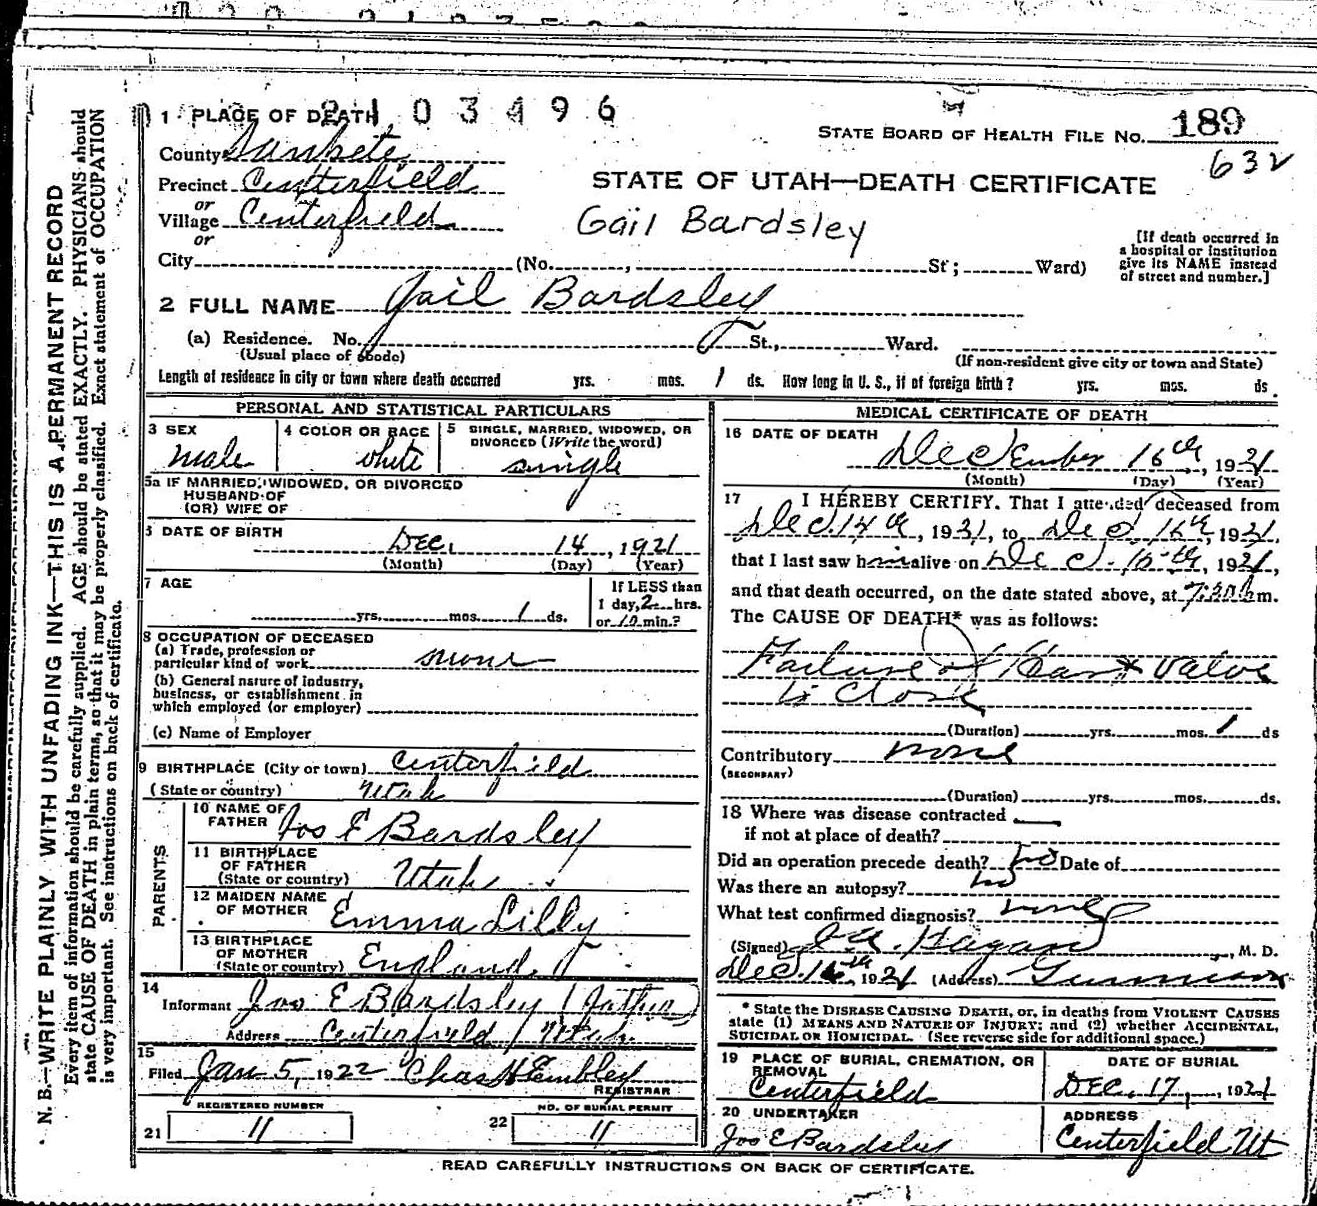 2103496
1 PLACE OF DEATH
STATE BOARD OF HEALTH FILE NO. 189
632
County Sanpete
Precinct Centerfield
or
Village Centerfield
or
STATE OF UTAH—DEATH CERTIFICATE
Gail Bardsley
[If death occurred in
a hospital or institution
give its NAME instead
of street and number.]
City (No. , St; Ward)
2 FULL NAME Gail Bardsley
(a) Residence. No. St., Ward.
(Usual place of abode) (If non-resident give city or town and State)
Length of residence in city or town where death occurred yrs. mos. 1 ds. How long in U. S., if of foreign birth? yrs. mos. ds.
PERSONAL AND STATISTICAL PARTICULARS
3 SEX male
4 COLOR OR RACE white
5 SINGLE, MARRIED, WIDOWED, OR
DIVORCED (Write the word)
single
5a IF MARRIED, WIDOWED, OR DIVORCED
HUSBAND OF
(OR) WIFE OF
6 DATE OF BIRTH
Dec. 14, 1921
(Month) (Day) (Year)
7 AGE
yrs. mos. 1 ds.
If LESS than
1 day, 2 hrs.
or 10 min.?
8 OCCUPATION OF DECEASED
(a) Trade, profession or
particular kind of work none
(b) General nature of industry,
business, or establishment in
which employed (or employer)
(c) Name of Employer
9 BIRTHPLACE (City or town) Centerfield
(State or country) Utah
PARENTS
10 NAME OF
FATHER Jos E Bardsley
11 BIRTHPLACE
OF FATHER
(State or country) Utah
12 MAIDEN NAME
OF MOTHER Emma Lilly
13 BIRTHPLACE
OF MOTHER
(State or country) England
14
Informant Jos E Bardsley (Father)
Address Centerfield Utah
15
Filed Jan 5, 1922 Chas H Embley
REGISTRAR
REGISTERED NUMBER
21 11
NO. OF BURIAL PERMIT
22 11
MEDICAL CERTIFICATE OF DEATH
16 DATE OF DEATH
December 16th, 1921
(Month) (Day) (Year)
17 I HEREBY CERTIFY. That I attended deceased from
Dec. 14th, 1921, to Dec 16th, 1921,
that I last saw him alive on Dec. 16th, 1921,
and that death occurred, on the date stated above, at 7:30 am.
The CAUSE OF DEATH* was as follows:
Failure of Heart valve
to Close
(Duration) yrs. mos. 1 ds
Contributory none
(SECONDARY)
(Duration) yrs. mos. ds.
18 Where was disease contracted
if not at place of death?
Did an operation precede death? no Date of
Was there an autopsy? no
What test confirmed diagnosis? none
(Signed) Hagan, M. D.
Dec. 16th, 1921 (Address) Gunnison
* State the DISEASE CAUSING DEATH, or, in deaths from VIOLENT CAUSES
state (1) MEANS AND NATURE OF INJURY; and (2) whether ACCIDENTAL,
SUICIDAL OR HOMICIDAL. (See reverse side for additional space.)
19 PLACE OF BURIAL, CREMATION, OR
REMOVAL
Centerfield
DATE OF BURIAL
Dec. 17, 1921
20 UNDERTAKER
Jos E Bardsley
ADDRESS
Centerfield Ut
READ CAREFULLY INSTRUCTIONS ON BACK OF CERTIFICATE.
N. B.—WRITE PLAINLY WITH UNFADING INK—THIS IS A PERMANENT RECORD
Every item of information should be carefully supplied. AGE should be stated EXACTLY. PHYSICIANS should
state CAUSE OF DEATH in plain terms, so that it may be properly classified. Exact statement of OCCUPATION
is very important. See instructions on back of certificate.